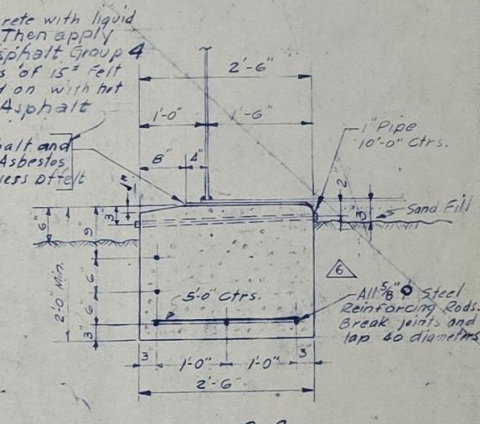 rete with liquid
Then apply
sphalt Group 4
s of 15# Felt
d on with hot
Asphalt
alt and
Asbestos
2'-6"
1'-0"
1'-6"
8"
4"
1" Pipe
10'-0" Ctrs.
1"
2
3"
Sand Fill
6"
9
3"
6
6
3"
2'-0" Min.
6
5'-0" Ctrs.
All 5/8" Φ Steel
Reinforcing Rods.
Break joints and
lap 40 diameters
3"
1'-0"
1'-0"
3
2'-6"